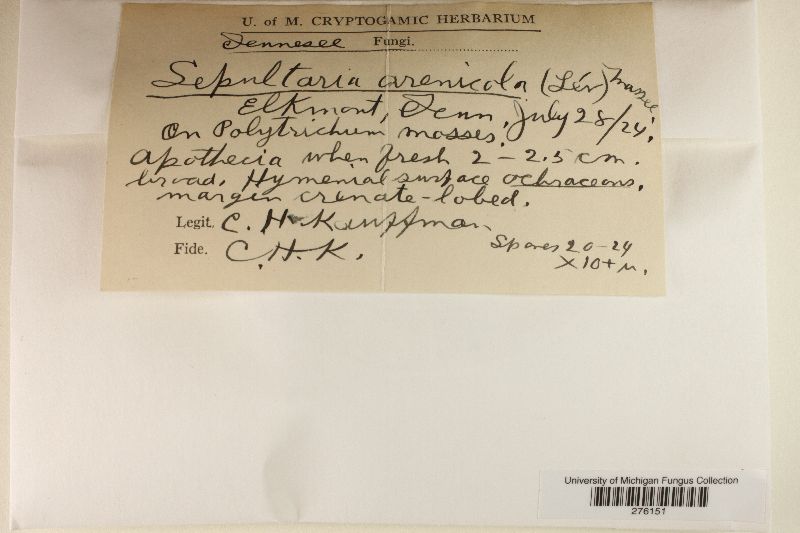 U. of M. CRYPTOGAMIC HERBARIUM
Tennesee Fungi.
Sepultaria arenicola (Lév) Massee
Elkmont, Tenn. July 28/24.
On Polytrichum mosses.
Apothecia when fresh 2 - 2.5 cm.
broad. Hymenial surface ochraceous,
margin crenate-lobed.
Legit. C. H. Kauffman
Fide. C. H. K.
Spores 20-24
X 10+ µ.
University of Michigan Fungus Collection
276151